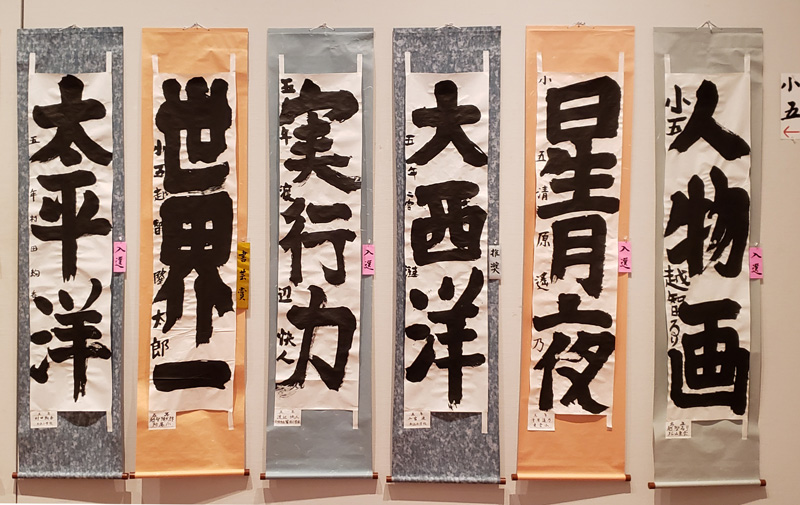 太平洋
五年 村田
入選
世界一
小五 越智 太郎
書芸賞
実行力
五年 渡辺 快人
入選
大西洋
五年
推奨
星月夜
小五 清原
入選
人物画
小五 越智るり
入選
小五
←